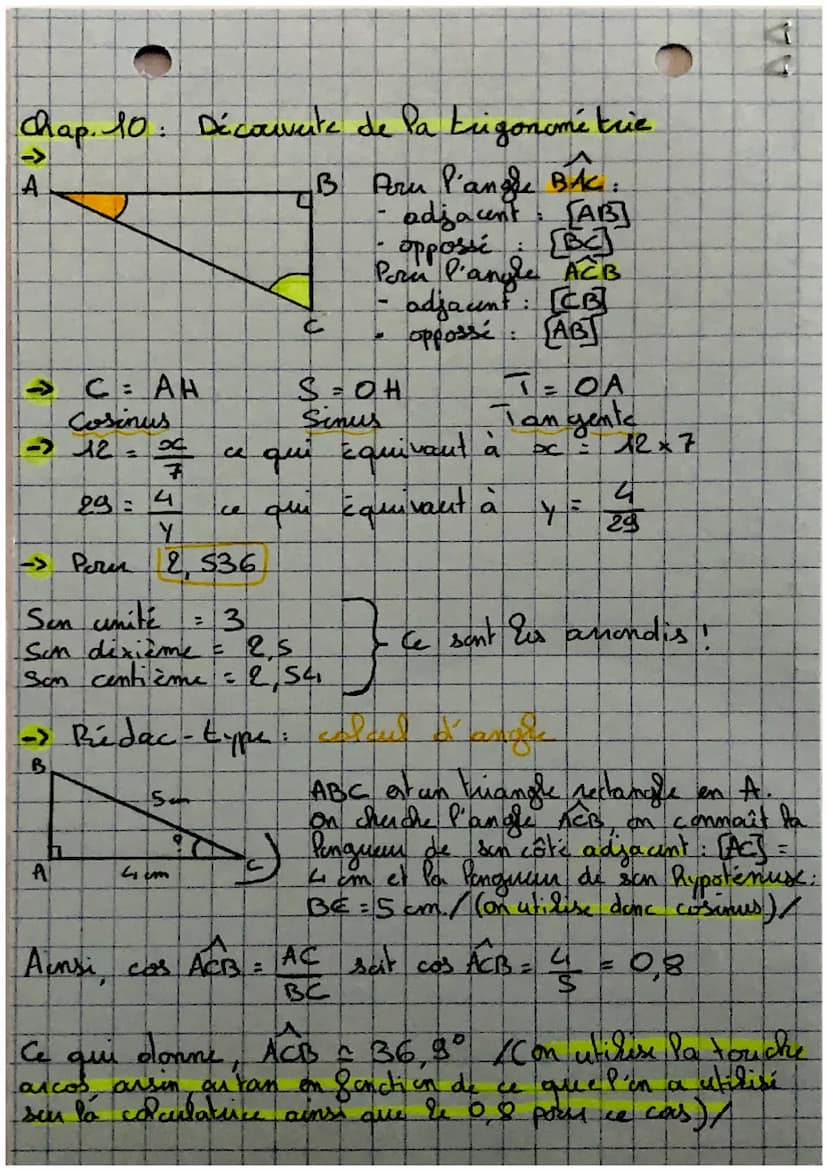 Chap. 10 : Découverte de la trigonométrie
->
A B Pour l'angle BÂC :
- adjacent : [AB]
- oppossé : [BC]
Pour l'angle AĈB
- adjacent : [CB]
- oppossé : [AB]
C
-> C = AH S = OH T = OA
Cosinus Sinus Tangente
-> 12 = x/7 ce qui équivaut à x = 12 x 7
29 = 4/y ce qui équivaut à y = 4/29
-> Pour 2,536
Son unité = 3
Son dixième = 2,5
Son centième = 2,54
Ce sont les arrondis !
-> Rédac-type : calcul d'angle
B
5 cm
?
A 4 cm C
ABC est un triangle rectangle en A.
On cherche l'angle AĈB, on connaît la
longueur de son côté adjacent : [AC] =
4 cm et la longueur de son hypoténuse :
BC = 5 cm. /(on utilise donc cosinus)/
Ainsi, cos AĈB = AC/BC soit cos AĈB = 4/5 = 0,8
Ce qui donne, AĈB ≈ 36,9° /(on utilise la touche
arcos, arsin, artan en fonction de ce que l'on a utilisé
sur la calculatrice ainsi que le 0,8 pour ce cas)/